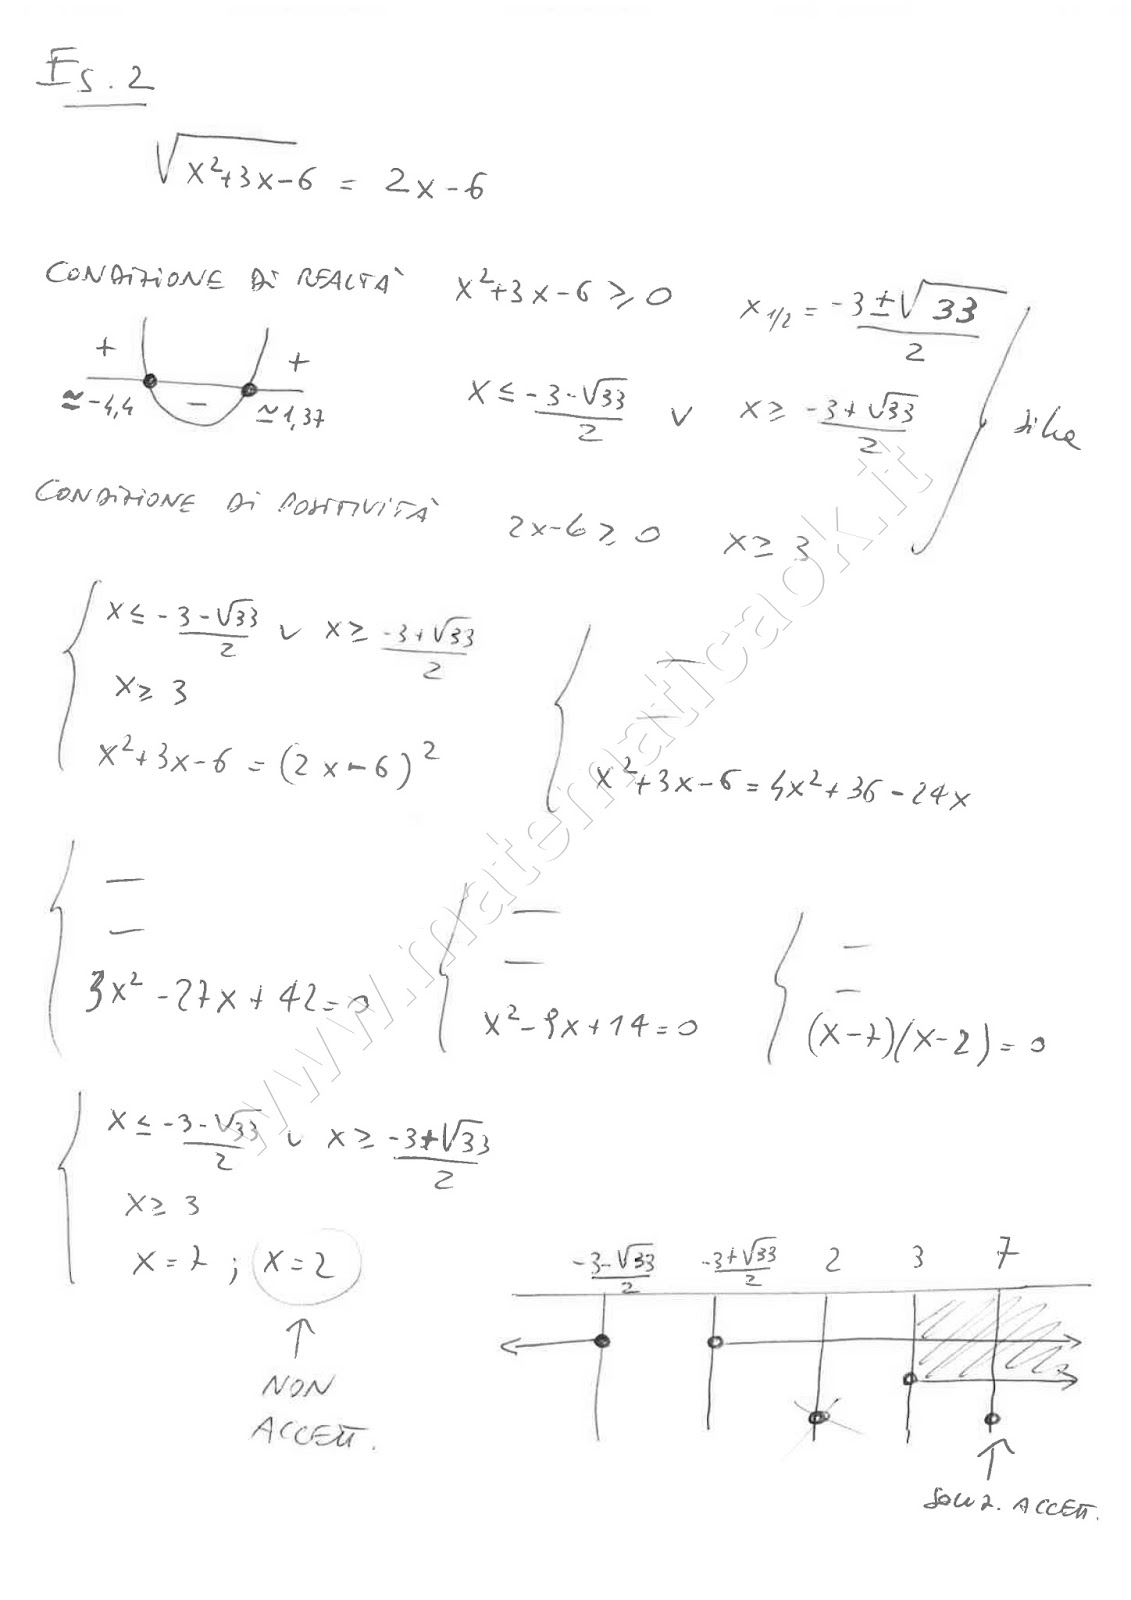 Es. 2
√(x²+3x-6) = 2x-6
CONDIZIONE DI REALTÀ x²+3x-6 ≥ 0 x 1/2 = (-3±√33)/2
+ - +
≃-4,4 ≃1,37
x ≤ (-3-√33)/2 ∨ x ≥ (-3+√33)/2 si ha
CONDIZIONE DI POSITIVITÀ 2x-6 ≥ 0 x ≥ 3
{ x ≤ (-3-√33)/2 ∨ x ≥ (-3+√33)/2
x ≥ 3
x²+3x-6 = (2x-6)²
{ —
—
x²+3x-6 = 4x²+36-24x
{ —
—
3x²-27x+42=0
{ —
—
x²-9x+14=0
{ —
—
(x-7)(x-2)=0
{ x ≤ (-3-√33)/2 ∨ x ≥ (-3+√33)/2
x ≥ 3
x=7 ; x=2
↑
NON
ACCETT.
(-3-√33)/2 (-3+√33)/2 2 3 7
↑
SOLUZ. ACCETT.
www.matematicaok.it